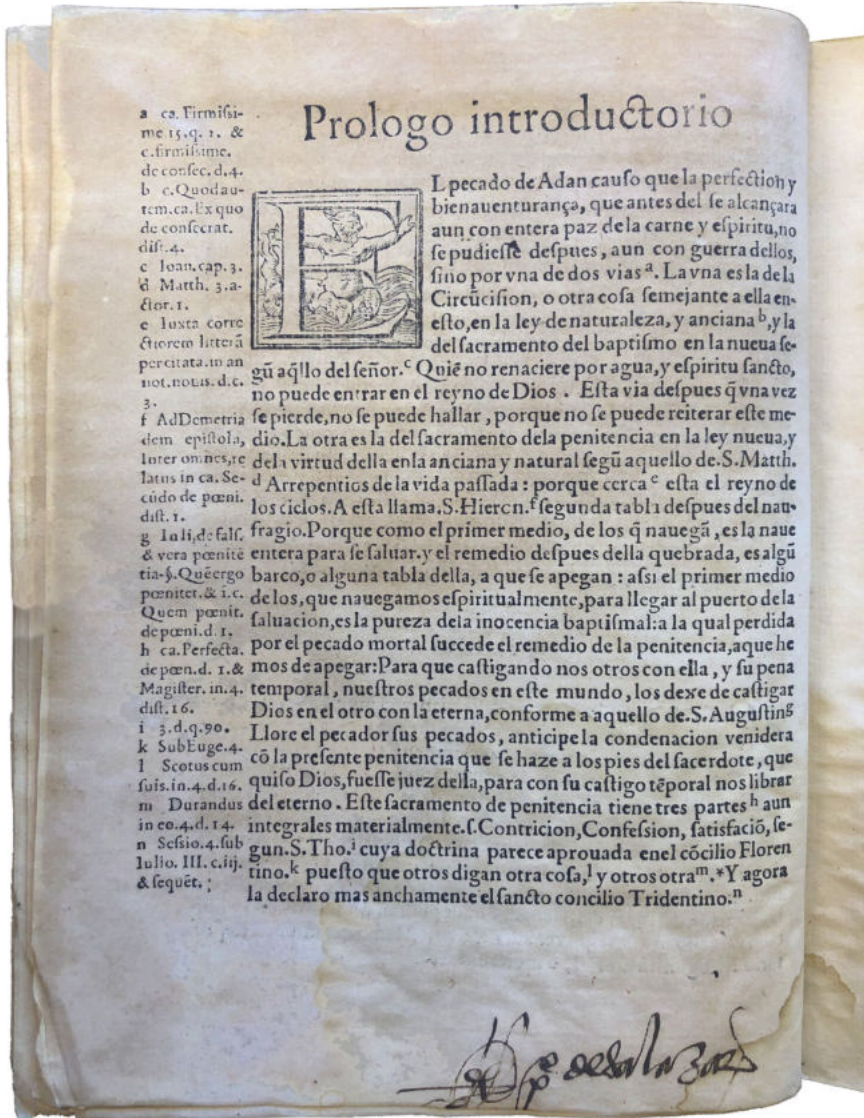 Prologo introductorio
a ca. Firmiſsi-
me 15.q. 1. &
c.firmiſsime.
de conſec. d.4.
b c.Quodau-
tem.ca.Ex quo
de conſecrat.
diſt.4.
c Ioan.cap. 3.
d Matth. 3.a-
ctor.1.
e Iuxta corre
ctiorem litterã
per citata.in an
not.nouis.d.c.
3.
f AdDemetria
dem epiſtola,
Inter omnes,re
latus in ca. Se-
cũdo de pœni.
diſt. 1.
g In li,de falſ.
& vera pœnitẽ
tia-§.Quẽergo
pœnitet.& i.c.
Quem pœnit.
depœni.d. 1.
h ca.Perfecta.
de pœn.d. 1.&
Magiſter. in.4.
diſt.16.
i 3.d.q.90.
k SubEuge.4.
l Scotus cum
ſuis.in.4.d.16.
m Durandus
in eo.4.d.14.
n Seſsio.4.ſub
Iulio. III. c.iij.
& ſequẽt.
EL pecado de Adan cauſo que la perfection y
bienauenturança, que antes del ſe alcançara
aun con entera paz de la carne y eſpiritu,no
ſe pudieſſe deſpues, aun con guerra dellos,
ſino por vna de dos vias ᵃ. La vna es la de la
Circũciſion, o otra coſa ſemejante a ella en-
eſto,en la ley de naturaleza, y anciana ᵇ,y la
del ſacramento del baptiſmo en la nueua ſe-
gũ aq̃llo del ſeñor.ᶜ Quiẽ no renaciere por agua,y eſpiritu ſancto,
no puede entrar en el reyno de Dios . Eſta via deſpues q̃ vna vez
ſe pierde,no ſe puede hallar , porque no ſe puede reiterar eſte me-
dio.La otra es la del ſacramento dela penitencia en la ley nueua,y
dela virtud della enla anciana y natural ſegũ aquello de.S.Matth.
ᵈ Arrepentios de la vida paſſada : porque cerca ᵉ eſta el reyno de
los cielos.A eſta llama.S.Hieron.ᶠ ſegunda tabla deſpues del nau-
fragio.Porque como el primer medio, de los q̃ nauegã , es la naue
entera para ſe ſaluar.y el remedio deſpues della quebrada, es algũ
barco,o alguna tabla della, a que ſe apegan : aſsi el primer medio
de los,que nauegamos eſpiritualmente,para llegar al puerto de la
ſaluacion,es la pureza dela inocencia baptiſmal:a la qual perdida
por el pecado mortal ſuccede el remedio de la penitencia,aque he
mos de apegar:Para que caſtigando nos otros con ella , y ſu pena
temporal , nueſtros pecados en eſte mundo , los dexe de caſtigar
Dios en el otro con la eterna,conforme a aquello de.S.Auguſtin ᵍ
Llore el pecador ſus pecados, anticipe la condenacion venidera
cõ la preſente penitencia que ſe haze a los pies del ſacerdote, que
quiſo Dios,fueſſe juez della,para con ſu caſtigo tẽporal nos librar
del eterno . Eſte ſacramento de penitencia tiene tres partes ʰ aun
integrales materialmente.ſ.Contricion,Confeſsion, ſatisfaciõ, ſe-
gun.S.Tho.ⁱ cuya doctrina parece aprouada enel cõcilio Floren
tino.ᵏ pueſto que otros digan otra coſa,ˡ y otros otraᵐ.*Y agora
la declaro mas anchamente el ſancto concilio Tridentino.ⁿ
de salazar